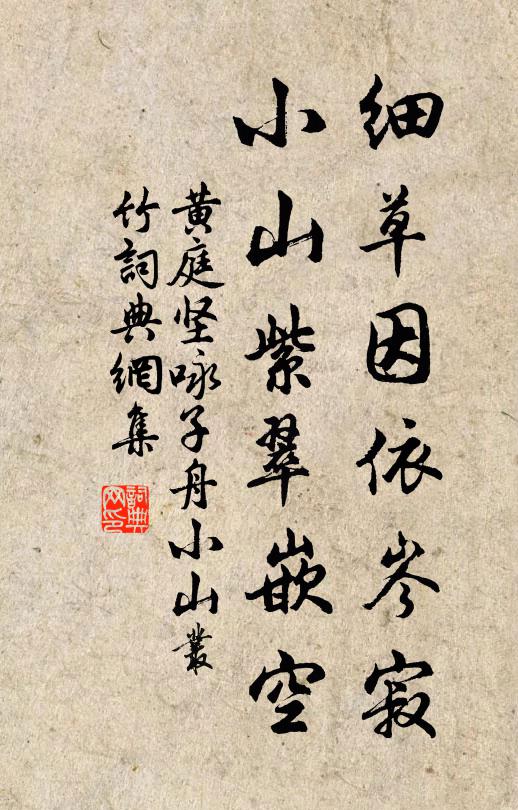 细草因依岑寂
小山紫翠嵌空
黄庭坚咏子舟小山叢
竹詞典網集
詞典网印